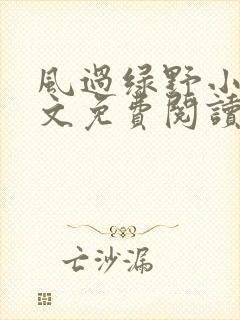 風過綠野小
文免費閱讀
亡沙漏